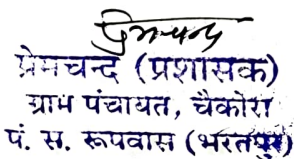 प्रेमचन्द
प्रेमचन्द (प्रशासक)
ग्राम पंचायत, चैकोरा
पं. स. रूपवास (भरतपुर)